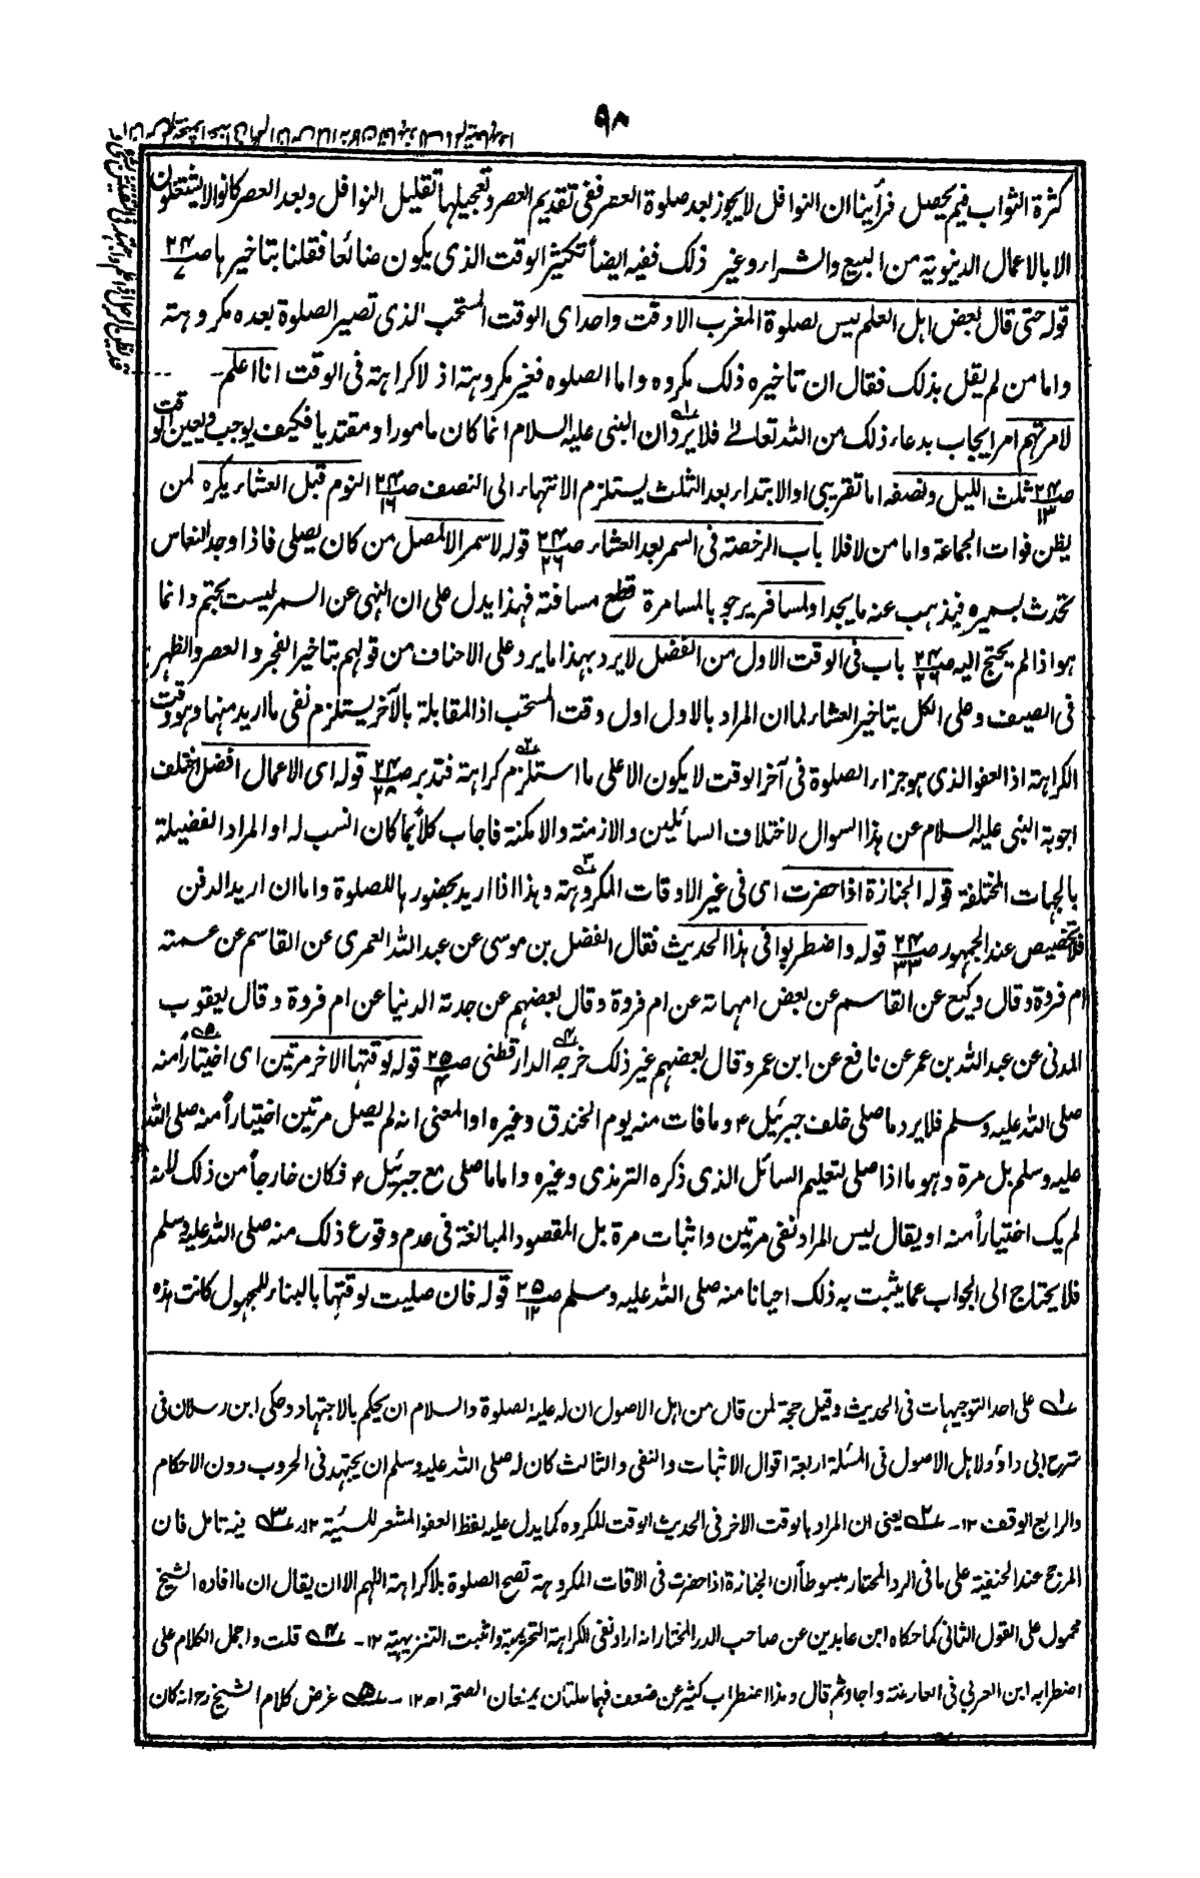 ٩٨
كثرة الثواب فيم يحصل فرأينا ان النوافل لا يجوز بعد صلوة العصر ففى تقديم العصر وتعجيلها تقليل النوافل وبعد العصر كانوا لا يشتغلون
الا بالاعمال الدينوية من البيع والشراء وغير ذلك ففيه ايضاً تكثير الوقت الذى يكون ضائعا فقلنا بتاخيرها صـ٢٤/٧
قوله حتى قال بعض اهل العلم ليس لصلوة المغرب الا وقت واحد اى الوقت المستحب الذى تصير الصلوة بعده مكروهته
واما من لم يقل بذلك فقال ان تاخيره ذلك مكروه واما الصلوه فغير مكروهته اذ لا كراهته فى الوقت انا اعلم۔
لامرتهم امر ايجاب بدعاء ذلك من الله تعالےٰ فلا يرد ان النبى عليه السلام انما كان مامورا ومقتديا فكيف يوجب ويعين الوقت
صـ٢٤/١٣ ثلث الليل ونصفه اما تقريبى او الابتداء بعد الثلث يستلزم الانتهاء الى النصف صـ٢٤/١٦ النوم قبل العشاء يكره لمن
يظن فوات الجماعة واما من لا فلا باب الرخصته فى السمر بعد العشاء صـ٢٤/٢٦ قوله لا سمر الا لمصل من كان يصلى فاذا وجد النعاس
تحدث بسميره فيذهب عنه ما يجد او لمسافر يرجو بالمسامرة قطع مسافته فهذا يدل على ان النهى عن السمر ليست بحتم وانما
هو اذا لم يحتج اليه صـ٢٤/٢٦ باب فى الوقت الاول من الفضل لا يرد بهذا ما يرد على الاحناف من قولهم بتاخير الفجر والعصر والظهر
فى الصيف وعلى الكل بتاخير العشاء لما ان المراد بالاول اول وقت المستحب اذ المقابلة بالآخر يستلزم نفى ما اريد منها وهو وقت
الكراهته اذ العفو الذى هو جزاء الصلوة فى آخر الوقت لا يكون الا على ما استلزم كراهته فتدبر صـ٢٤/٢٨ قوله اى الاعمال افضل اختلف
اجوبة النبى عليه السلام عن هذا السوال لاختلاف السائلين والازمنته والامكنة فاجاب كلاً بما كان انسب له او المراد الفضيلة
بالجهات المختلفة قوله الجنازة اذا حضرت اى فى غير الاوقات المكروهته وهذا اذا اريد بحضورها للصلوة واما ان اريد الدفن
فلا تخصيص عند الجمهور صـ٢٤/٣٣ قوله واضطربوا فى هذا الحديث فقال الفضل بن موسى عن عبدالله العمرى عن القاسم عن عمته
ام فروة وقال وكيع عن القاسم عن بعض امهاته عن ام فروة وقال بعضهم عن جدته الدنيا عن ام فروة وقال يعقوب
المدنى عن عبدالله بن عمر عن نافع عن ابن عمر وقال بعضهم غير ذلك خرجه الدارقطنى صـ٢٥/٤ قوله لوقتها الاخر مرتين اى اختياراً منه
صلى الله عليه وسلم فلا يرد ما صلى خلف جبرئيل ٤ وما فات منه يوم الخندق وغيره او المعنى انه لم يصل مرتين اختياراً منه صلى الله
عليه وسلم بل مرة وهو ما اذا صلى لتعليم السائل الذى ذكره الترمذى وغيره واما ما صلى مع جبرئيل ٤ فكان خارجاً من ذلك لانه
لم يك اختياراً منه او يقال ليس المراد نفى مرتين واثبات مرة بل المقصود المبالغة فى عدم وقوع ذلك منه صلى الله عليه وسلم
فلا يحتاج الى الجواب عما يثبت به ذلك احيانا منه صلى الله عليه وسلم صـ٢٥/١٢ قوله فان صليت لوقتها بالبناء للمجهول كانت هذه
لـ١ على احد التوجيهات فى الحديث وقيل حجة لمن قال من اهل الاصول ان له عليه الصلوة والسلام ان يحكم بالاجتهاد وحكى ابن رسلان فى
شرح ابى داؤد ولاهل الاصول فى المسئلة اربعة اقوال الاثبات والنفى والثالث كان له صلى الله عليه وسلم ان يجتهد فى الحروب دون الاحكام
والرابع الوقف ١٢۔ لـ٢ يعنى ان المراد بالوقت الاخر فى الحديث الوقت المكروه كما يدل عليه لفظ العفو المشعر للسيئة ١٢۔ لـ٣ فيه تامل فان
المرجح عند الحنفيته على ما فى الرد المحتار مبسوطاً ان الجنازة اذا حضرت فى الاقات المكروهته تصح الصلوة بلا كراهته اللهم الا ان يقال ان ما افاده الشيخ
محمول على القول الثانى كما حكاه ابن عابدين عن صاحب الدر المختار انه اراد نفى الكراهته التحريمية واثبت التنزيهية ١٢۔ لـ٤ قلت واجمل الكلام على
اضطرابه ابن العربى فى العارضته واجاد ثم قال وهذا اضطراب كثير عن ضعف فهما علتان يمنعان الصحته اھ ١٢۔ لـ٥ غرض كلام الشيخ رح انه كان